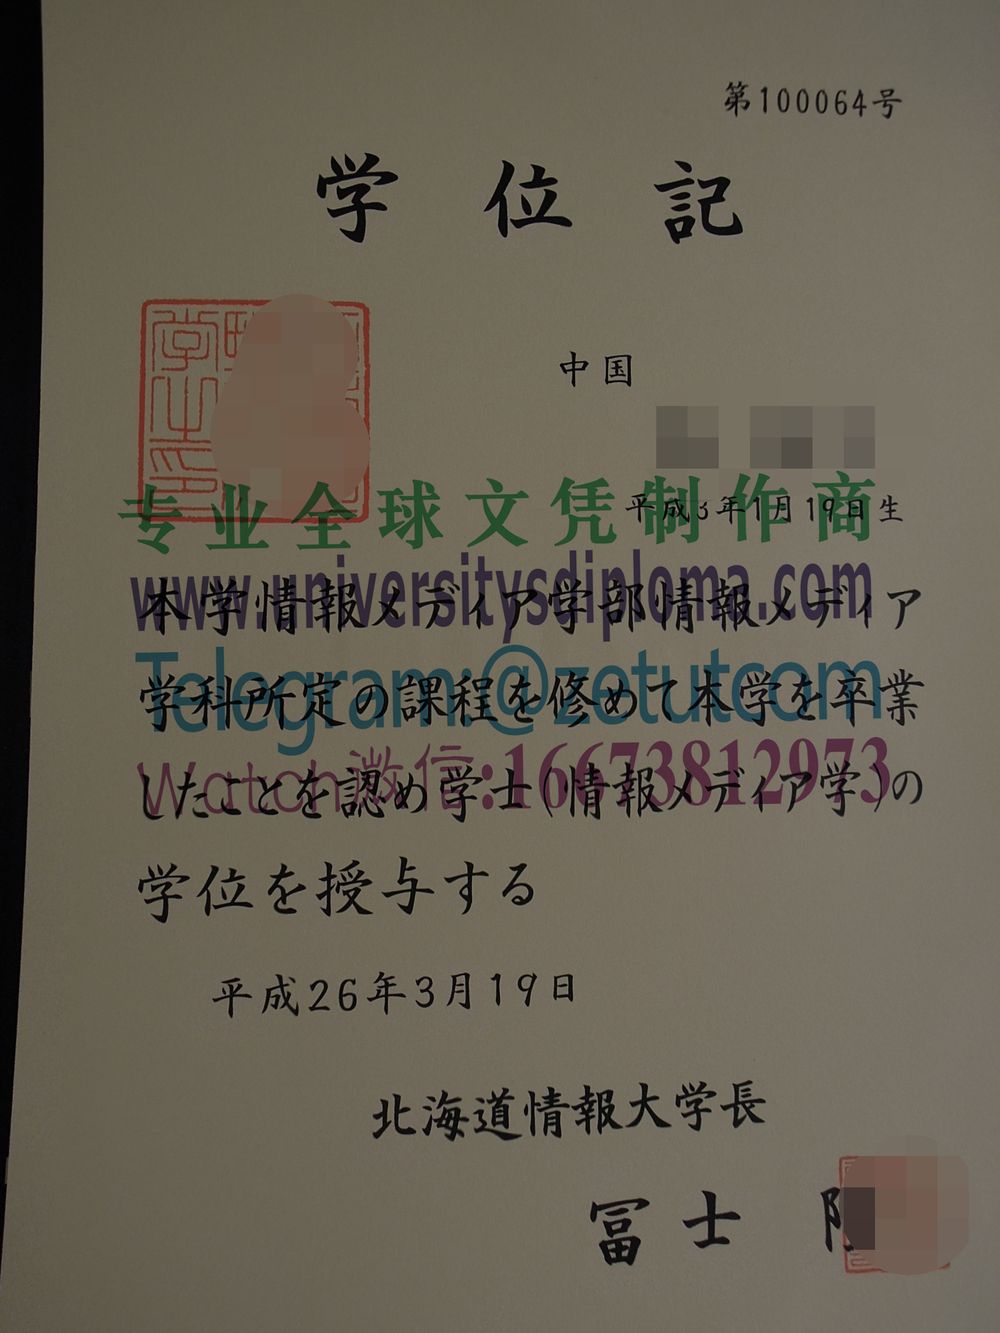 第100064号
学位記
中国
平成3年1月19日生
专业全球文凭制作商
www.universitysdiploma.com
本学情報メディア学部情報メディア
Telegram:@zotutcom
学科所定の課程を修めて本学を卒業
Watch微信:16673812973
したことを認め学士(情報メディア学)の
学位を授与する
平成26年3月19日
北海道情報大学長
冨士